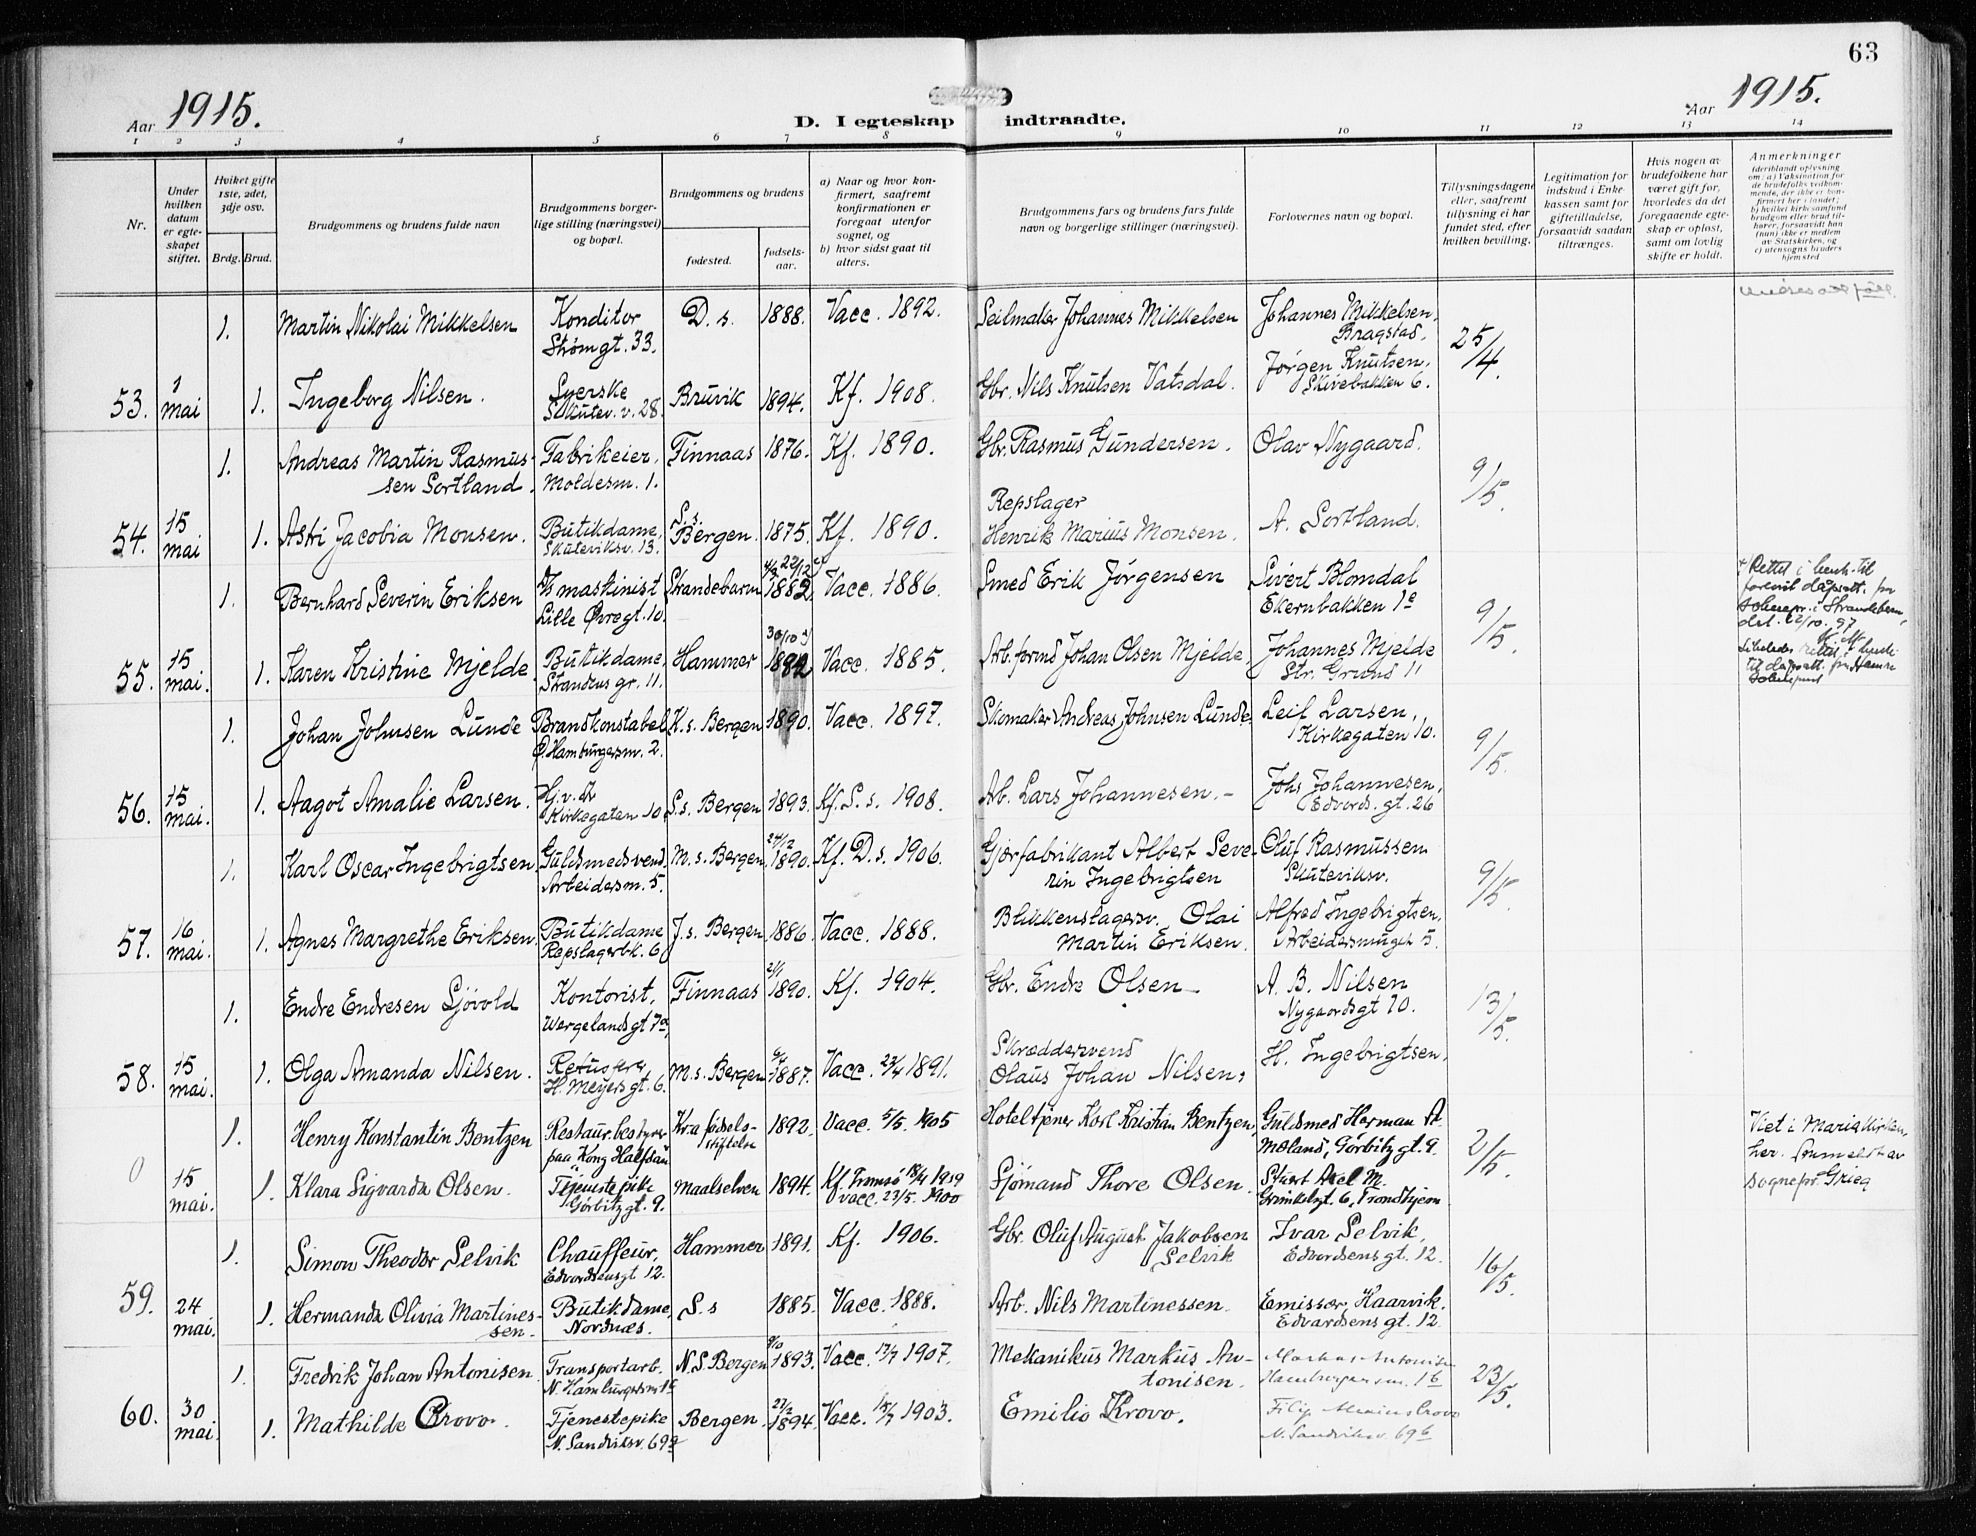 63
Aar 1915.
D. I egteskap indtraadte.
Aar 1915.
1 2 3 4 5 6 7 8 9 10 11 12 13 14
Nr.
Under hvilken datum er egteskapet stiftet.
Hvilket gifte 1ste, 2det, 3dje osv.
Brdg. Brud.
Brudgommens og brudens fulde navn
Brudgommens borgerlige stilling (næringsvei) og bopæl.
Brudgommens og brudens
fødested.
fødselsaar.
a) Naar og hvor konfirmert, saafremt konfirmationen er foregaat utenfor sognet, og
b) hvor sidst gaat til alters.
Brudgommens fars og brudens fars fulde navn og borgerlige stillinger (næringsvei).
Forlovernes navn og bopæl.
Tillysningsdagene eller, saafremt tillysning ei har fundet sted, efter hvilken bevilling.
Legitimation for indskud i Enkekassen samt for giftetilladelse, forsaavidt saadan tiltrænges.
Hvis nogen av brudefolkene har været gift før, hvorledes da det foregaaende egteskap er opløst, samt om lovlig skifte er holdt.
Anmerkninger
(deriblandt oplysning om: a) Vaksination for de brudefolks vedkommende, der ikke er konfirmert her i landet; b) hvilket kirkesamfund brudgom eller brud tilhører, forsaavidt han (hun) ikke er medlem av Statskirken, og c) utensogns bruders hjemsted
1. Martin Nikolai Mikkelsen Konditor Strømgt. 33. D. s. 1888. Vacc. 1892. Seilmaker Johannes Mikkelsen Johannes Mikkelsen, Bragstad. 25/4.
53. 1 mai 1. Ingeborg Nilsen. Syerske Skutev. v. 28. Bruvik 1894. Kf. 1908. Gbr. Nils Knutsen Vatsdal. Jørgen Knutsen, Skivebakken 6.
1. Andreas Martin Rasmussen Sortland. Fabrikeier, Moldesm. 1. Finnaas 1876. Kf. 1890. Gbr. Rasmus Gundersen. Olav Nygaard. 9/5.
54. 15 mai 1. Astri Jacobia Monsen. Butikdame, Skuteviksv. 13. S. s. Bergen. 1875. Kf. 1890. Repslager Henrik Marius Monsen. A. Sortland.
1. Bernhard Severin Eriksen Maskinist Lille Øvregt. 10. Strandebarm Vacc. 1886. Smed Erik Jørgensen Sivert Blomdal Ekernbakken 1e 9/5.
55. 15 mai. 1. Karen Kristine Mjelde Butikdame, Strandens gr. 11. Hammer Vacc. 1885. Arb.formd Johan Olsen Mjelde Johannes Mjelde Str. Grund 11
1. Johan Johnsen Lunde Brandkonstabel Ø. Hamburgersm. 2. K. s. Bergen 1890. Vacc. 1897. Skomaker Andreas Johnsen Lunde Leif Larsen, Kirkegaten 10. 9/5.
56. 15 mai. 1. Aagot Amalie Larsen. Kirkegaten 10. S. s. Bergen 1893. Kf. S. s. 1908. Arb. Lars Johannesen. Johs Johannesen, Edvard. gt. 26
1. Karl Oscar Ingebrigtsen Guldsmedsvend. Arbeidersm. 5. M. s. Bergen 24/12 1890. Kf. D. s. 1906. Gjærfabrikant Albert Severin Ingebrigtsen Oluf Rasmussen Skuteviksv. 9/5.
57. 16 mai. 1. Agnes Margrethe Eriksen Butikdame Repslagerbk. 6 J. s. Bergen 1886. Vacc. 1888. Blikkenslagersv. Olai Martin Eriksen. Alfred Ingebrigtsen, Arbeidersmuget 5.
1. Endre Endresen Sjøvold Kontorist, Wergelandsgt 7a, Finnaas 21/1 1890. Kf. 1904. Gbr. Endre Olsen A. B. Nilsen Nygaardsgt 70. 13/5.
58. 15 mai. 1. Olga Amanda Nilsen. H. Meyersgt. 6. M. s. Bergen 1887. Vacc. 1891. Skræddersvend Olaus Johan Nilsen. H. Ingebrigtsen.
1. Henry Konstantin Bentzen Restaur.bestyrer paa "Kong Halfdan" Kr.a fødselsstiftelse 1892. Vacc. 5/5. 1905 Hoteltjener Karl Kristian Bentzen, Guldsmed Herman A. Mæland, Görbitzgt. 9. 2/5. Viet i Mariakirken, her.
0 15 mai. 1. Klara Sigvarda Olsen. Tjenestepike Görbitzgt. 9. Maalselven 1894. Kf. Tromsø vacc. 27/5. 1900 Sjømand Thore Olsen. Stuert Axel M. sognepr. Grieg
1. Simon Theodor Selvik Chauffeur, Edvardsensgt 12. Hammer 1891. Kf. 1906. Gbr. Oluf August Jakobsen Selvik Ivar Selvik, Edvardsensgt. 12. 16/5.
59. 24 mai. 1. Hermanda Olivia Martinessen. Butikdame, Nordnæs. S. s 1885. Vacc. 1888. Arb. Nils Martinessen. Emissær, Haarvik. Edvardsensgt. 12.
1. Fredrik Johan Antonisen Transportarb. N. Hamburgersm 16 N. S. Bergen 1893. Vacc. 17/7 1907. Mekanikus Markus Antonisen. Markus Antonisen Hamburgersm. 16 23/5.
60. 30 mai. 1. Mathilde Crovo. Tjenestepike N. Sandviksv. 69 Bergen. 27/2 1894. Vacc. 1903. Emilio Krovo. Filip Crovo N. Sandviksv. 69